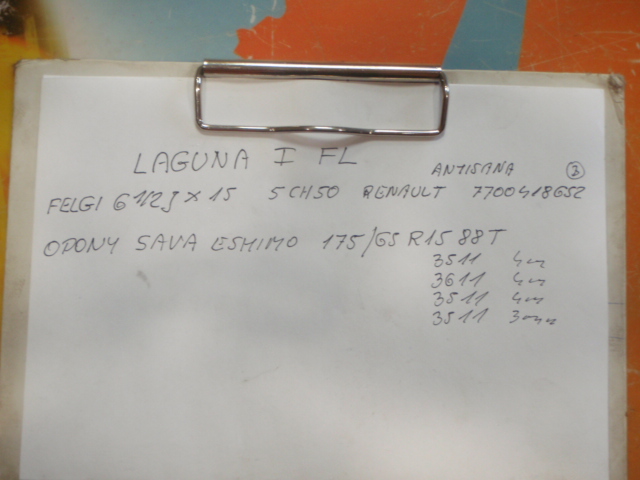 LAGUNA I FL
ANTISANA 3
FELGI 6 1/2 J X 15 5CH50 RENAULT 7700418652
OPONY SAVA ESKIMO 175/65 R15 88T
3511 4mm
3611 4mm
3511 4mm
3511 3mm